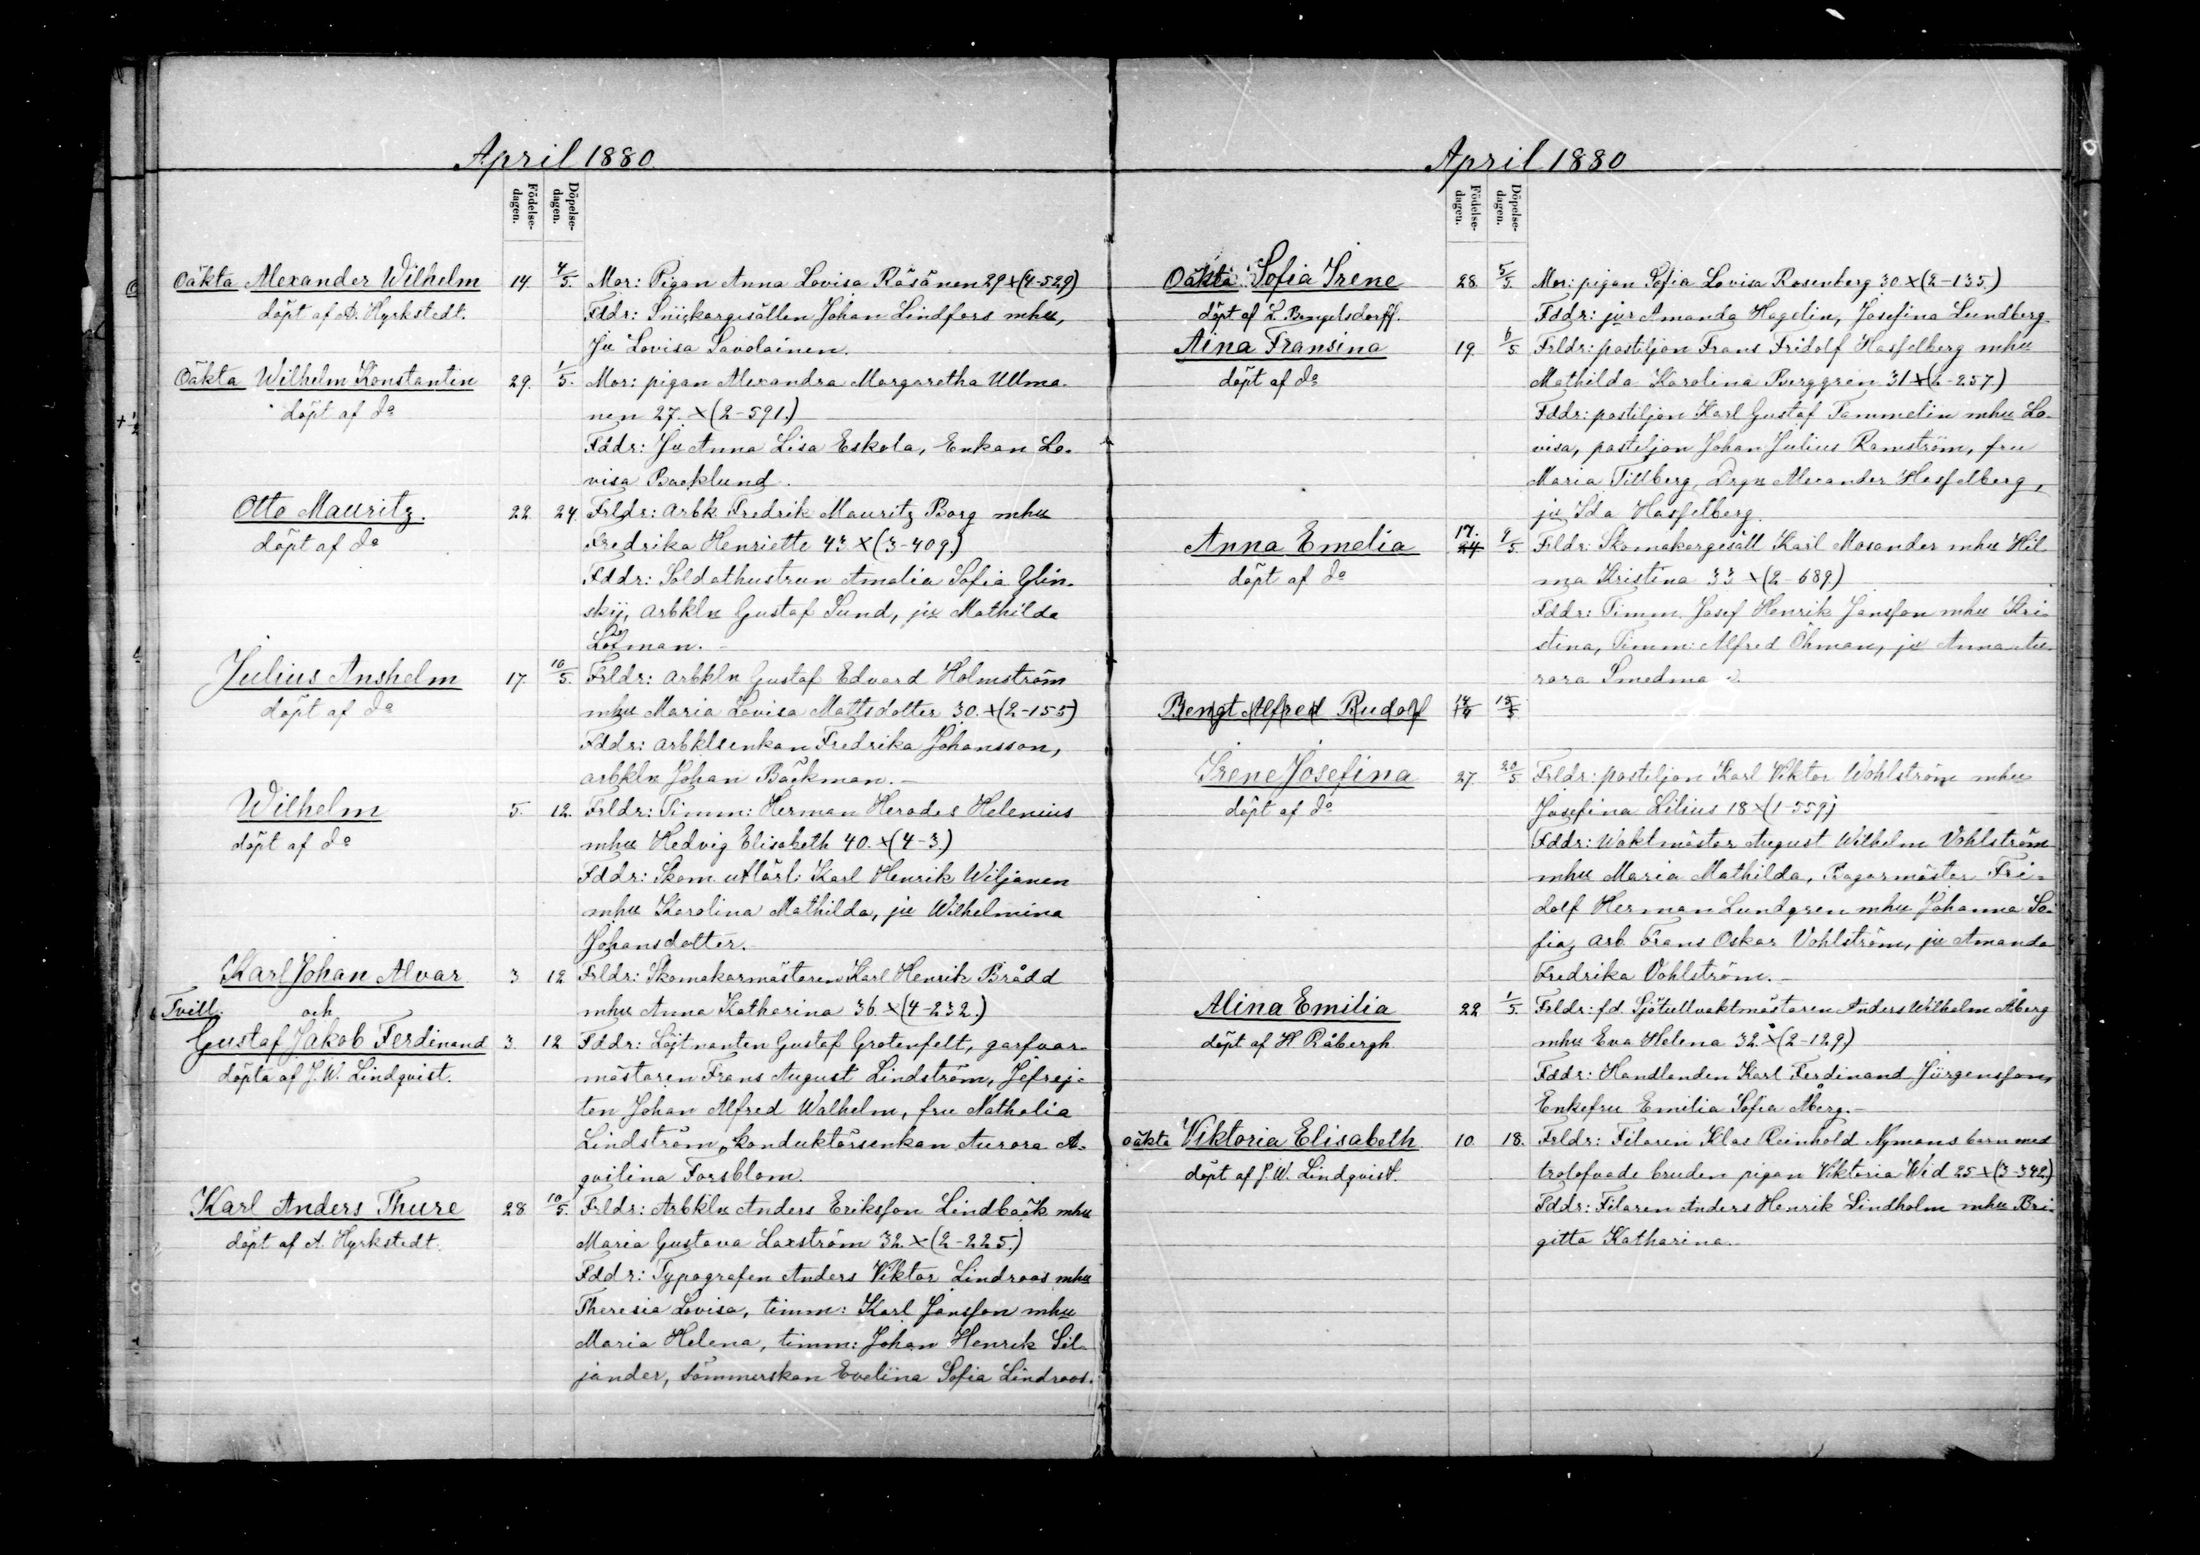 April 1880
Födelse-
dagen.
Döpelse-
dagen.
Oäkta Alexander Wilhelm 14 4/5. Mor: Pigan Anna Lovisa Räsänen 29 x (4-529)
döpt af A. Hyrkstedt. Fddr: Snickargesällen Johan Lindfors mhu,
Ju Lovisa Savolainen.
Oäkta Wilhelm Konstantin 29. 1/5. Mor: pigan Alexandra Margaretha Ullma-
döpt af do nen 27. x (2-591.)
Fddr: Ju Anna Lisa Eskola, Enkan Lo-
visa Backlund.
Otto Mauritz. 22 24. Frldr: Arbk. Fredrik Mauritz Borg mhu
döpt af do Fredrika Henriette 43 x (3-409)
Fddr: Soldathustrun Amalia Sofia Glin-
skij, arbkln Gustaf Sund, ju Mathilda
Lofman.
Julius Anshelm 17. 10/5. Frldr: arbkln Gustaf Edvard Holmström
döpt af do mhu Maria Lovisa Mattsdotter 30. x (2-155)
Fddr: arbklsenkan Fredrika Johansson,
arbkln Johan Bäckman.
Wilhelm 5. 12. Frldr: Timm: Herman Herodes Helenius
döpt af do mhu Hedvig Elisabeth 40. x (4-3.)
Fddr: Skom. utlärl: Karl Henrik Wiljanen
mhu Karolina Mathilda, ju Wilhelmina
Johansdotter.
Karl Johan Alvar 3 12 Frldr: Skomakarmästaren Karl Henrik Brådd
Tvill. och mhu Anna Katharina 36. x (4-232.)
Gustaf Jakob Ferdinand 3. 12 Fddr: Löjtnanten Gustaf Grotenfelt, garfvar-
döpta af J. W. Lindqvist. mästaren Frans August Lindström, Gefrej-
ten Johan Alfred Walhelm, fru Nathalia
Lindström, konduktörsenkan Aurora A-
qvilina Forsblom.
Karl Anders Thure 28 10/5. Frldr: Arbkln Anders Eriksson Lindbäck mhu
döpt af A. Hyrkstedt. Maria Gustava Laxström 32. x (2-225.)
Fddr: Typografen Anders Viktor Lindroos mhu
Theresia Lovisa, timm: Karl Jansson mhu
Maria Helena, timm: Johan Henrik Sil-
jander, Sömmerskan Evelina Sofia Lindroos.
April 1880
Födelse-
dagen.
Döpelse-
dagen.
Oäkta Sofia Irene 28. 5/5. Mor: pigan Sofia Lovisa Rosenberg 30 x (2-135.)
döpt af L. Bengelsdorff. Fddr: jur Amanda Hagelin, Josefina Lundberg
Aina Fransina 19. 6/5 Frldr: postiljon Frans Fridolf Hasselberg mhu
döpt af do Mathilda Karolina Berggren 31 x (2-257)
Fddr: postiljon Karl Gustaf Tammelin mhu Lo-
visa, postiljon Johan Julius Ramström, fru
Maria Tillberg, Drgn Alexander Hasselberg,
ju Ida Hasselberg.
Anna Emelia 17. 24 9/5 Frldr: Skomakargesäll Karl Mosander mhu Hil-
döpt af do ma Kristina 33 x (2-689)
Fddr: Timm. Josef Henrik Jansson mhu Kri-
stina, Timm: Alfred Öhman, ju Anna Au-
rora Smedma
Bengt Alfred Rudolf 14/4 15/5
Irene Josefina 27. 20/5 Frldr: postiljon Karl Viktor Wohlström mhu
döpt af do Josefina Lilius 18 x (1-559)
Fddr: Waktmästar August Wilhelm Vohlström
mhu Maria Mathilda, Bagarmäster Fri-
dolf Herman Lundgren mhu Johanna So-
fia, arb. Frans Oskar Vohlström, ju Amanda
Fredrika Vohlström.
Alina Emilia 22 1/5. Frldr: fd. Sjötullvaktmästaren Anders Wilhelm Åberg
döpt af H Råbergh mhu Eva Helena 32. x (2-129)
Fddr: Handlanden Karl Ferdinand Jürgensson,
Enkefru Emilia Sofia Åberg.
oäkta Viktoria Elisabeth 10 18. Frldr: Filaren Klas Reinhold Nymans barn med
döpt af J. W. Lindqvist. trolofvade bruden pigan Viktoria Wid 25 x (3-342)
Fddr: Filaren Anders Henrik Lindholm mhu Bri-
gitta Katharina.